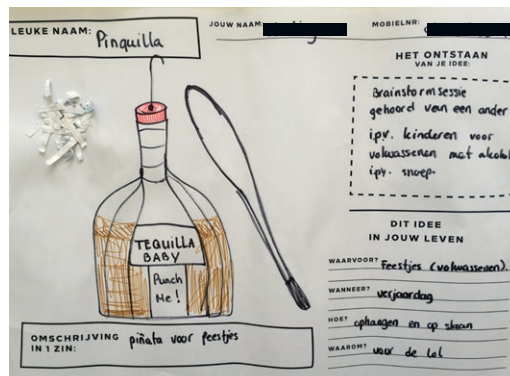 LEUKE NAAM: Pinquilla
JOUW NAAM:
MOBIELNR:
HET ONTSTAAN
VAN JE IDEE:
Brainstormsessie
gehoord van een ander
i.p.v. kinderen voor
volwassenen met alcohol
i.p.v. snoep.
TEQUILLA
BABY
Punch
Me!
DIT IDEE
IN JOUW LEVEN
WAARVOOR? Feestjes (volwassenen).
WANNEER? verjaardag
HOE? ophangen en op slaan
WAAROM? voor de lol
OMSCHRIJVING piñata voor feestjes
IN 1 ZIN: